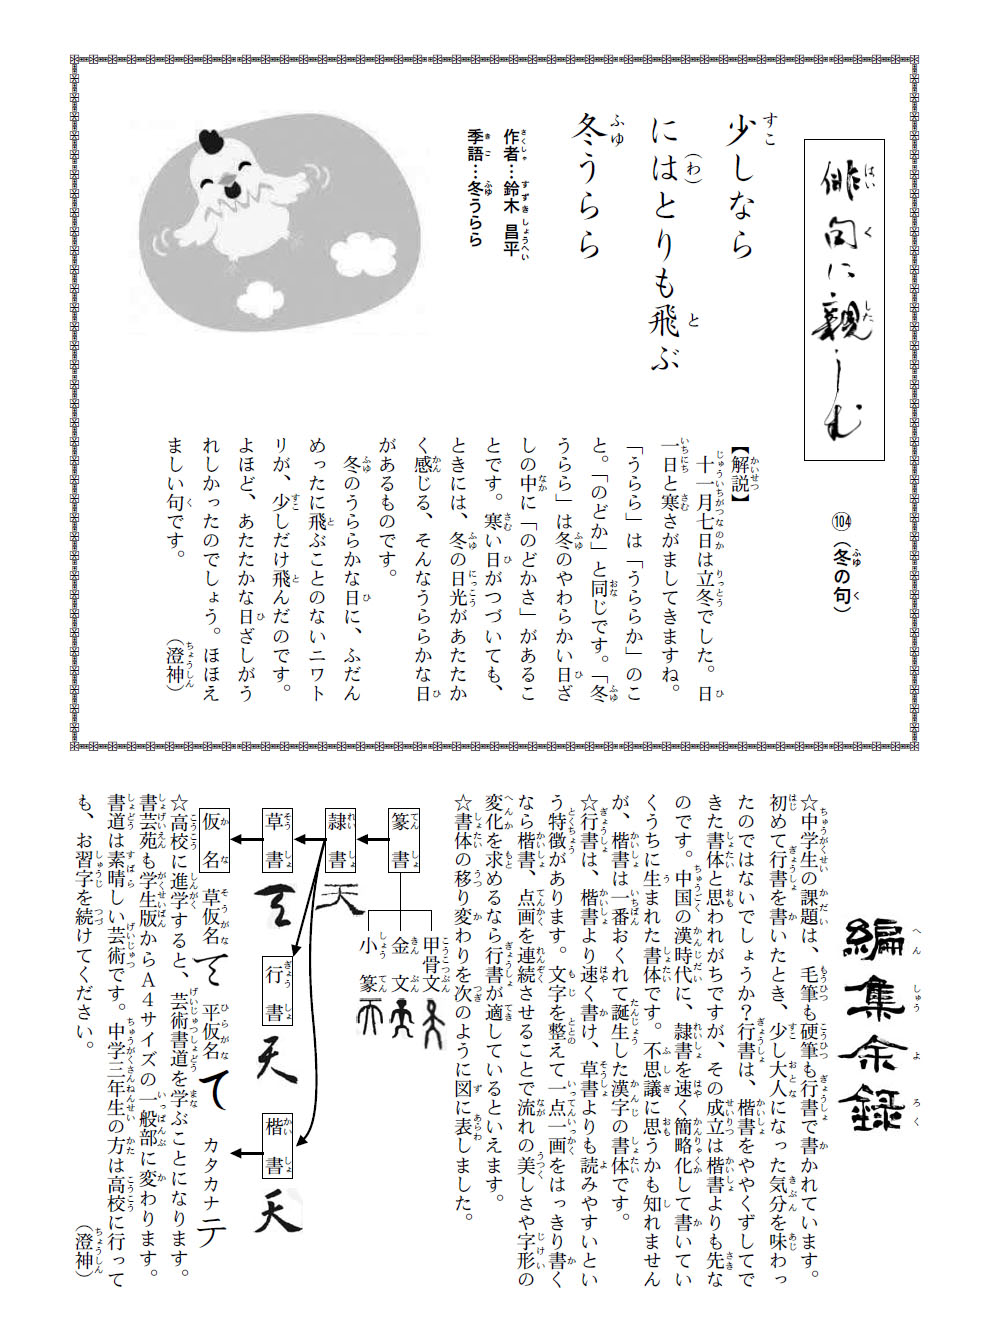 俳句に親しむ
104（冬の句）
少しなら
にはとりも飛ぶ
（わ）
冬うらら
作者…鈴木 昌平
季語…冬うらら
【解説】
十一月七日は立冬でした。日
一日と寒さがましてきますね。
「うらら」は「うららか」のこ
と。「のどか」と同じです。「冬
うらら」は冬のやわらかい日ざ
しの中に「のどかさ」があるこ
とです。寒い日がつづいても、
ときには、冬の日光があたたか
く感じる、そんなうららかな日
があるものです。
冬のうららかな日に、ふだん
めったに飛ぶことのないニワト
リが、少しだけ飛んだのです。
よほど、あたたかな日ざしがう
れしかったのでしょう。ほほえ
ましい句です。
（澄神）
編集余録
☆中学生の課題は、毛筆も硬筆も行書で書かれています。
初めて行書を書いたとき、少し大人になった気分を味わっ
たのではないでしょうか？行書は、楷書をややくずしてで
きた書体と思われがちですが、その成立は楷書よりも先な
のです。中国の漢時代に、隷書を速く簡略化して書いてい
くうちに生まれた書体です。不思議に思うかも知れません
が、楷書は一番おくれて誕生した漢字の書体です。
☆行書は、楷書より速く書け、草書よりも読みやすいとい
う特徴があります。文字を整えて一点一画をはっきり書く
なら楷書、点画を連続させることで流れの美しさや字形の
変化を求めるなら行書が適しているといえます。
☆書体の移り変わりを次のように図に表しました。
篆書
甲骨文
金文
小篆
隷書 天
草書 天
行書 天
楷書 天
仮名 草仮名 て 平仮名 て カタカナ テ
☆高校に進学すると、芸術書道を学ぶことになります。
書芸苑も学生版からＡ４サイズの一般部に変わります。
書道は素晴しい芸術です。中学三年生の方は高校に行って
も、お習字を続けてください。
（澄神）